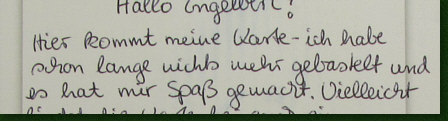 Hallo Engelbert!
Hier kommt meine Karte - ich habe
schon lange nichts mehr gebastelt und
es hat mir Spaß gemacht. Vielleicht